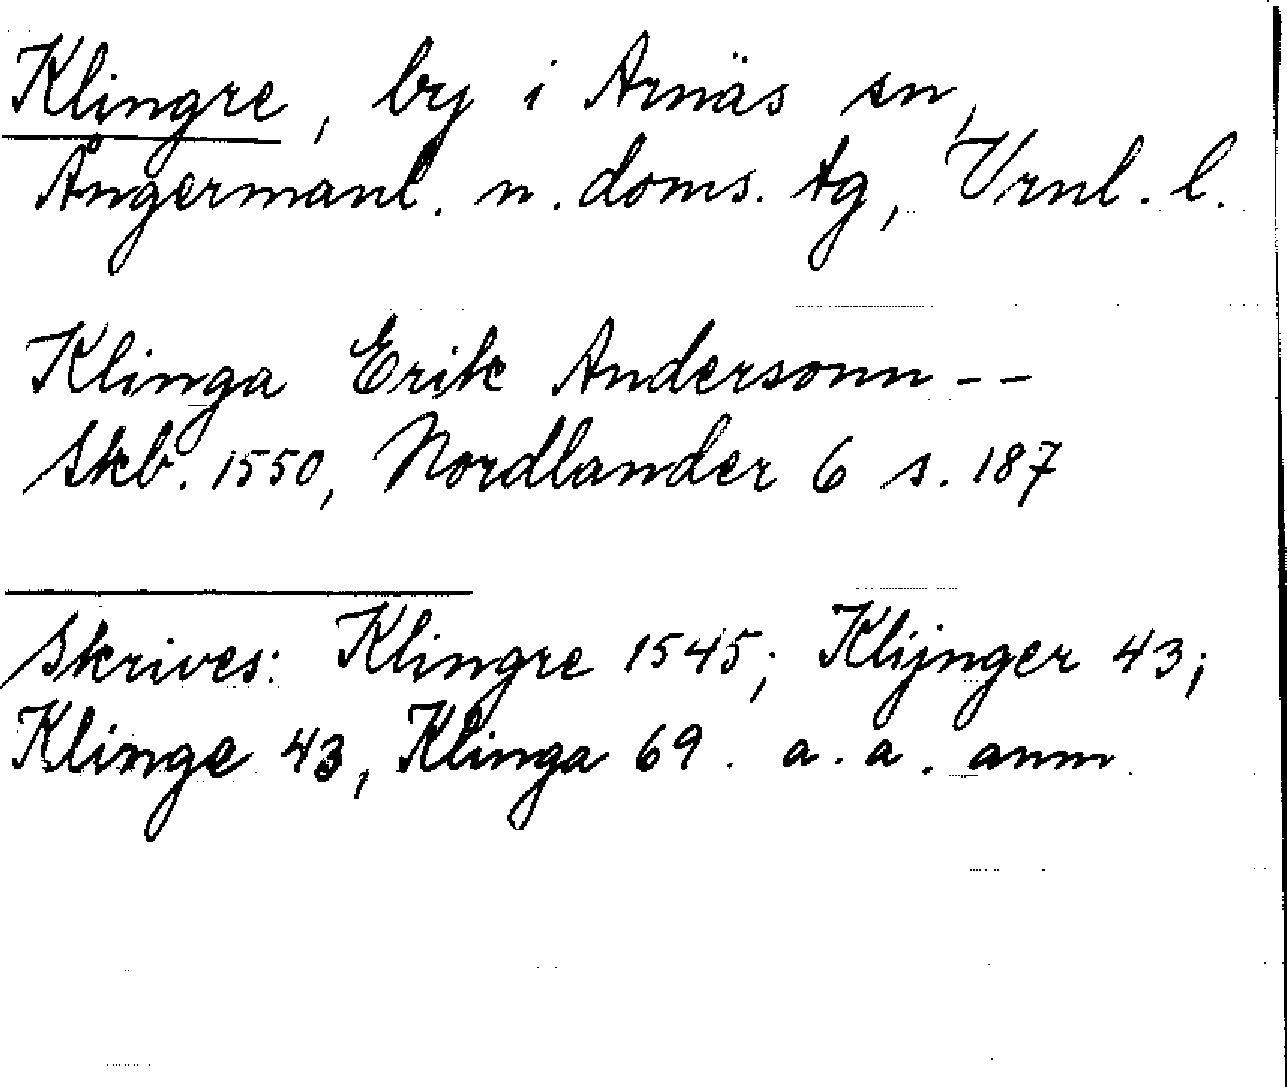 Klingre, by i Arnäs sn,
Ångermanl. n. doms. tg, Vrnl. l.
Klinga Erik Andersonn - -
Skb. 1550, Nordlander 6 s. 187
Skrives: Klingre 1545; Klijnger 43;
Klinge 43, Klinga 69. a. a. anm